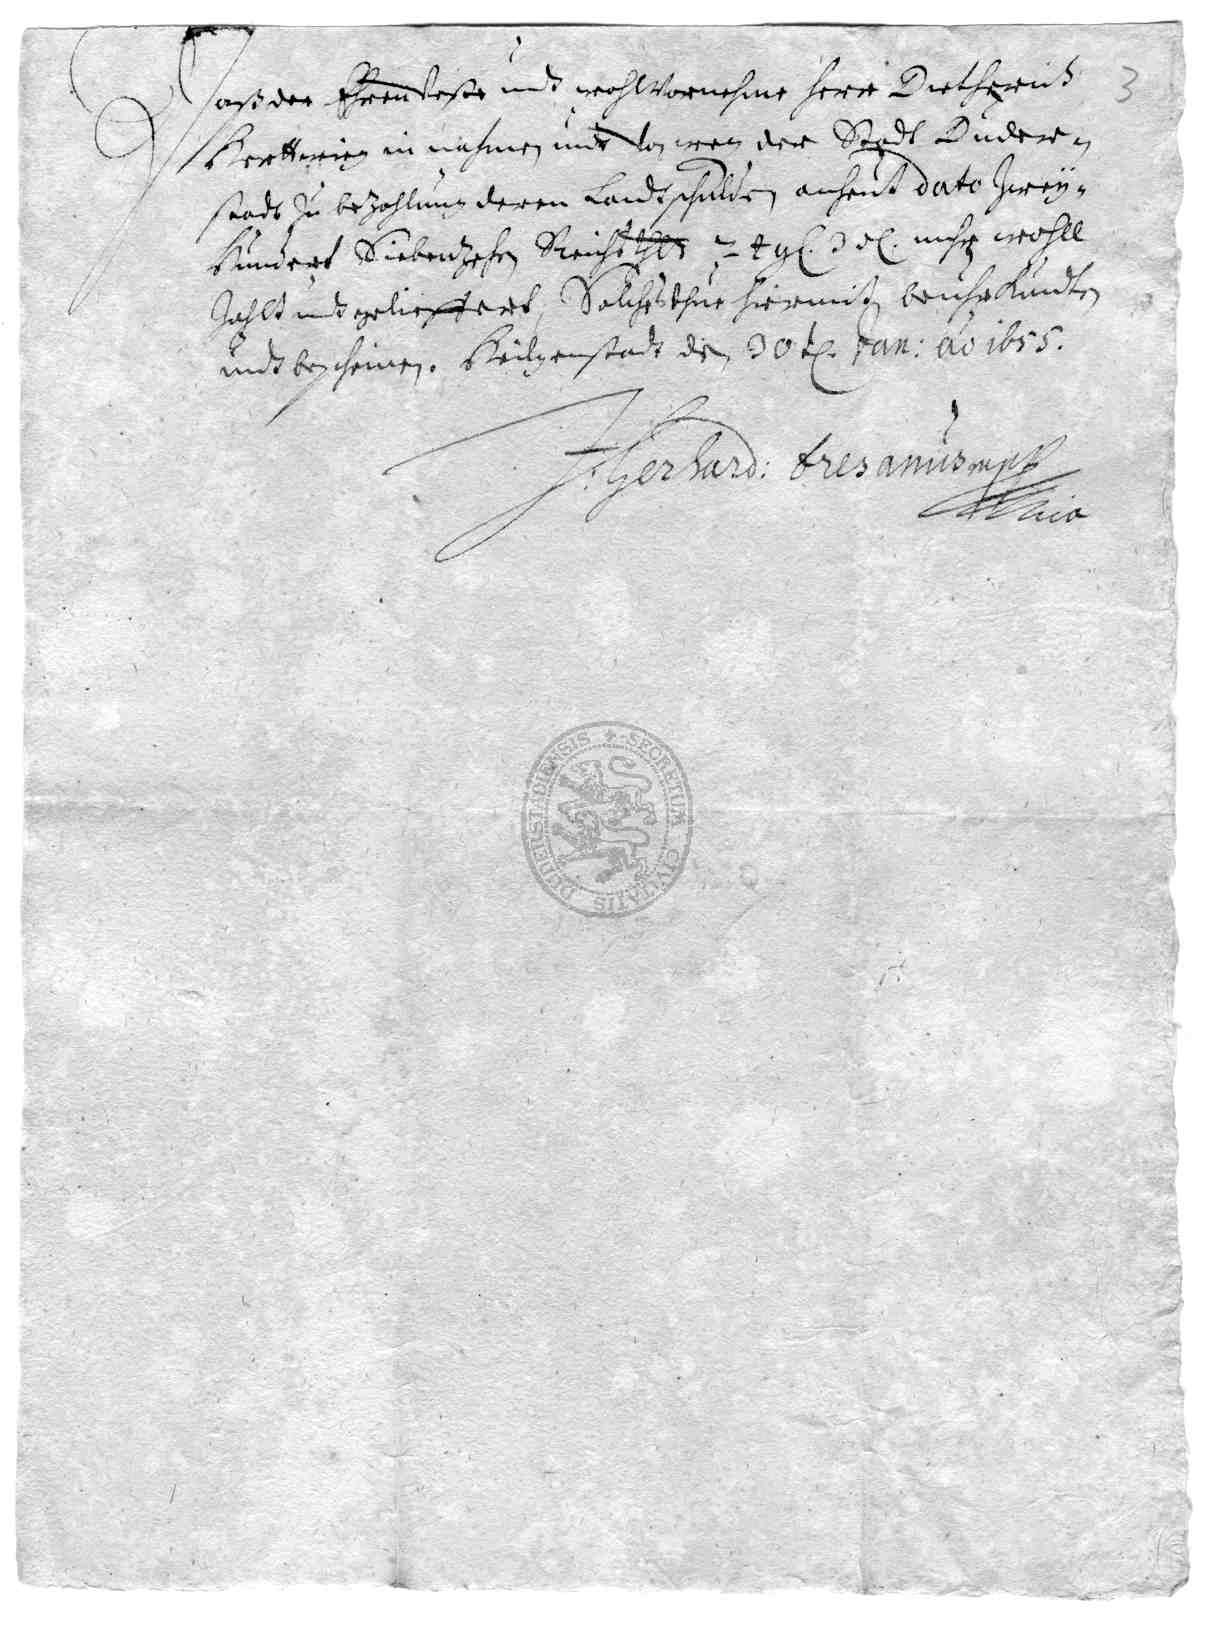 3
Daß der Ehrenveste undt wohlVornehme Herr Dietherich
in nahmen undt von wegen der Stadt Duder-
stadt zu bezahlung deren Landtschulden anheut dato Zwey-
hundert Siebenzehn Reichsthlr gl. 3 mihr wohll
Zahlt undt gelieffert, Solches thue hiermit beuhrkundten
undt bescheinen. Heiligenstadt den 30 t. Jan: ao 1655.
J: Gerhard: Cresanus mpp
SECRETUM CIVITATIS DUDERSTADIENSIS